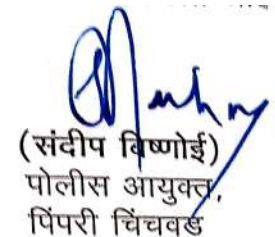 (संदीप विष्णोई)
पोलीस आयुक्त,
पिंपरी चिंचवड